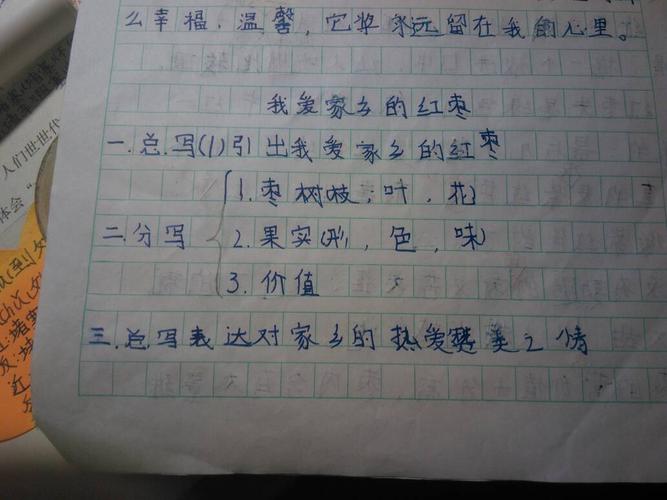 么幸福、温馨，它将永远留在我的心里。
我爱家乡的红枣
一.总写(1)引出我爱家乡的红枣
二.分写
1.枣树枝，叶，花
2.果实(形，色，味)
3.价值
三.总写表达对家乡的热爱赞美之情
人们世世代
体会“